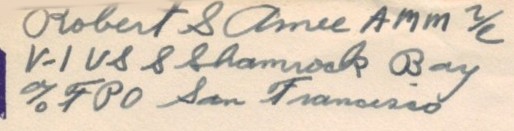 Robert S Amee AMM 2/c
V-1 USS Shamrock Bay
% FPO San Francisco